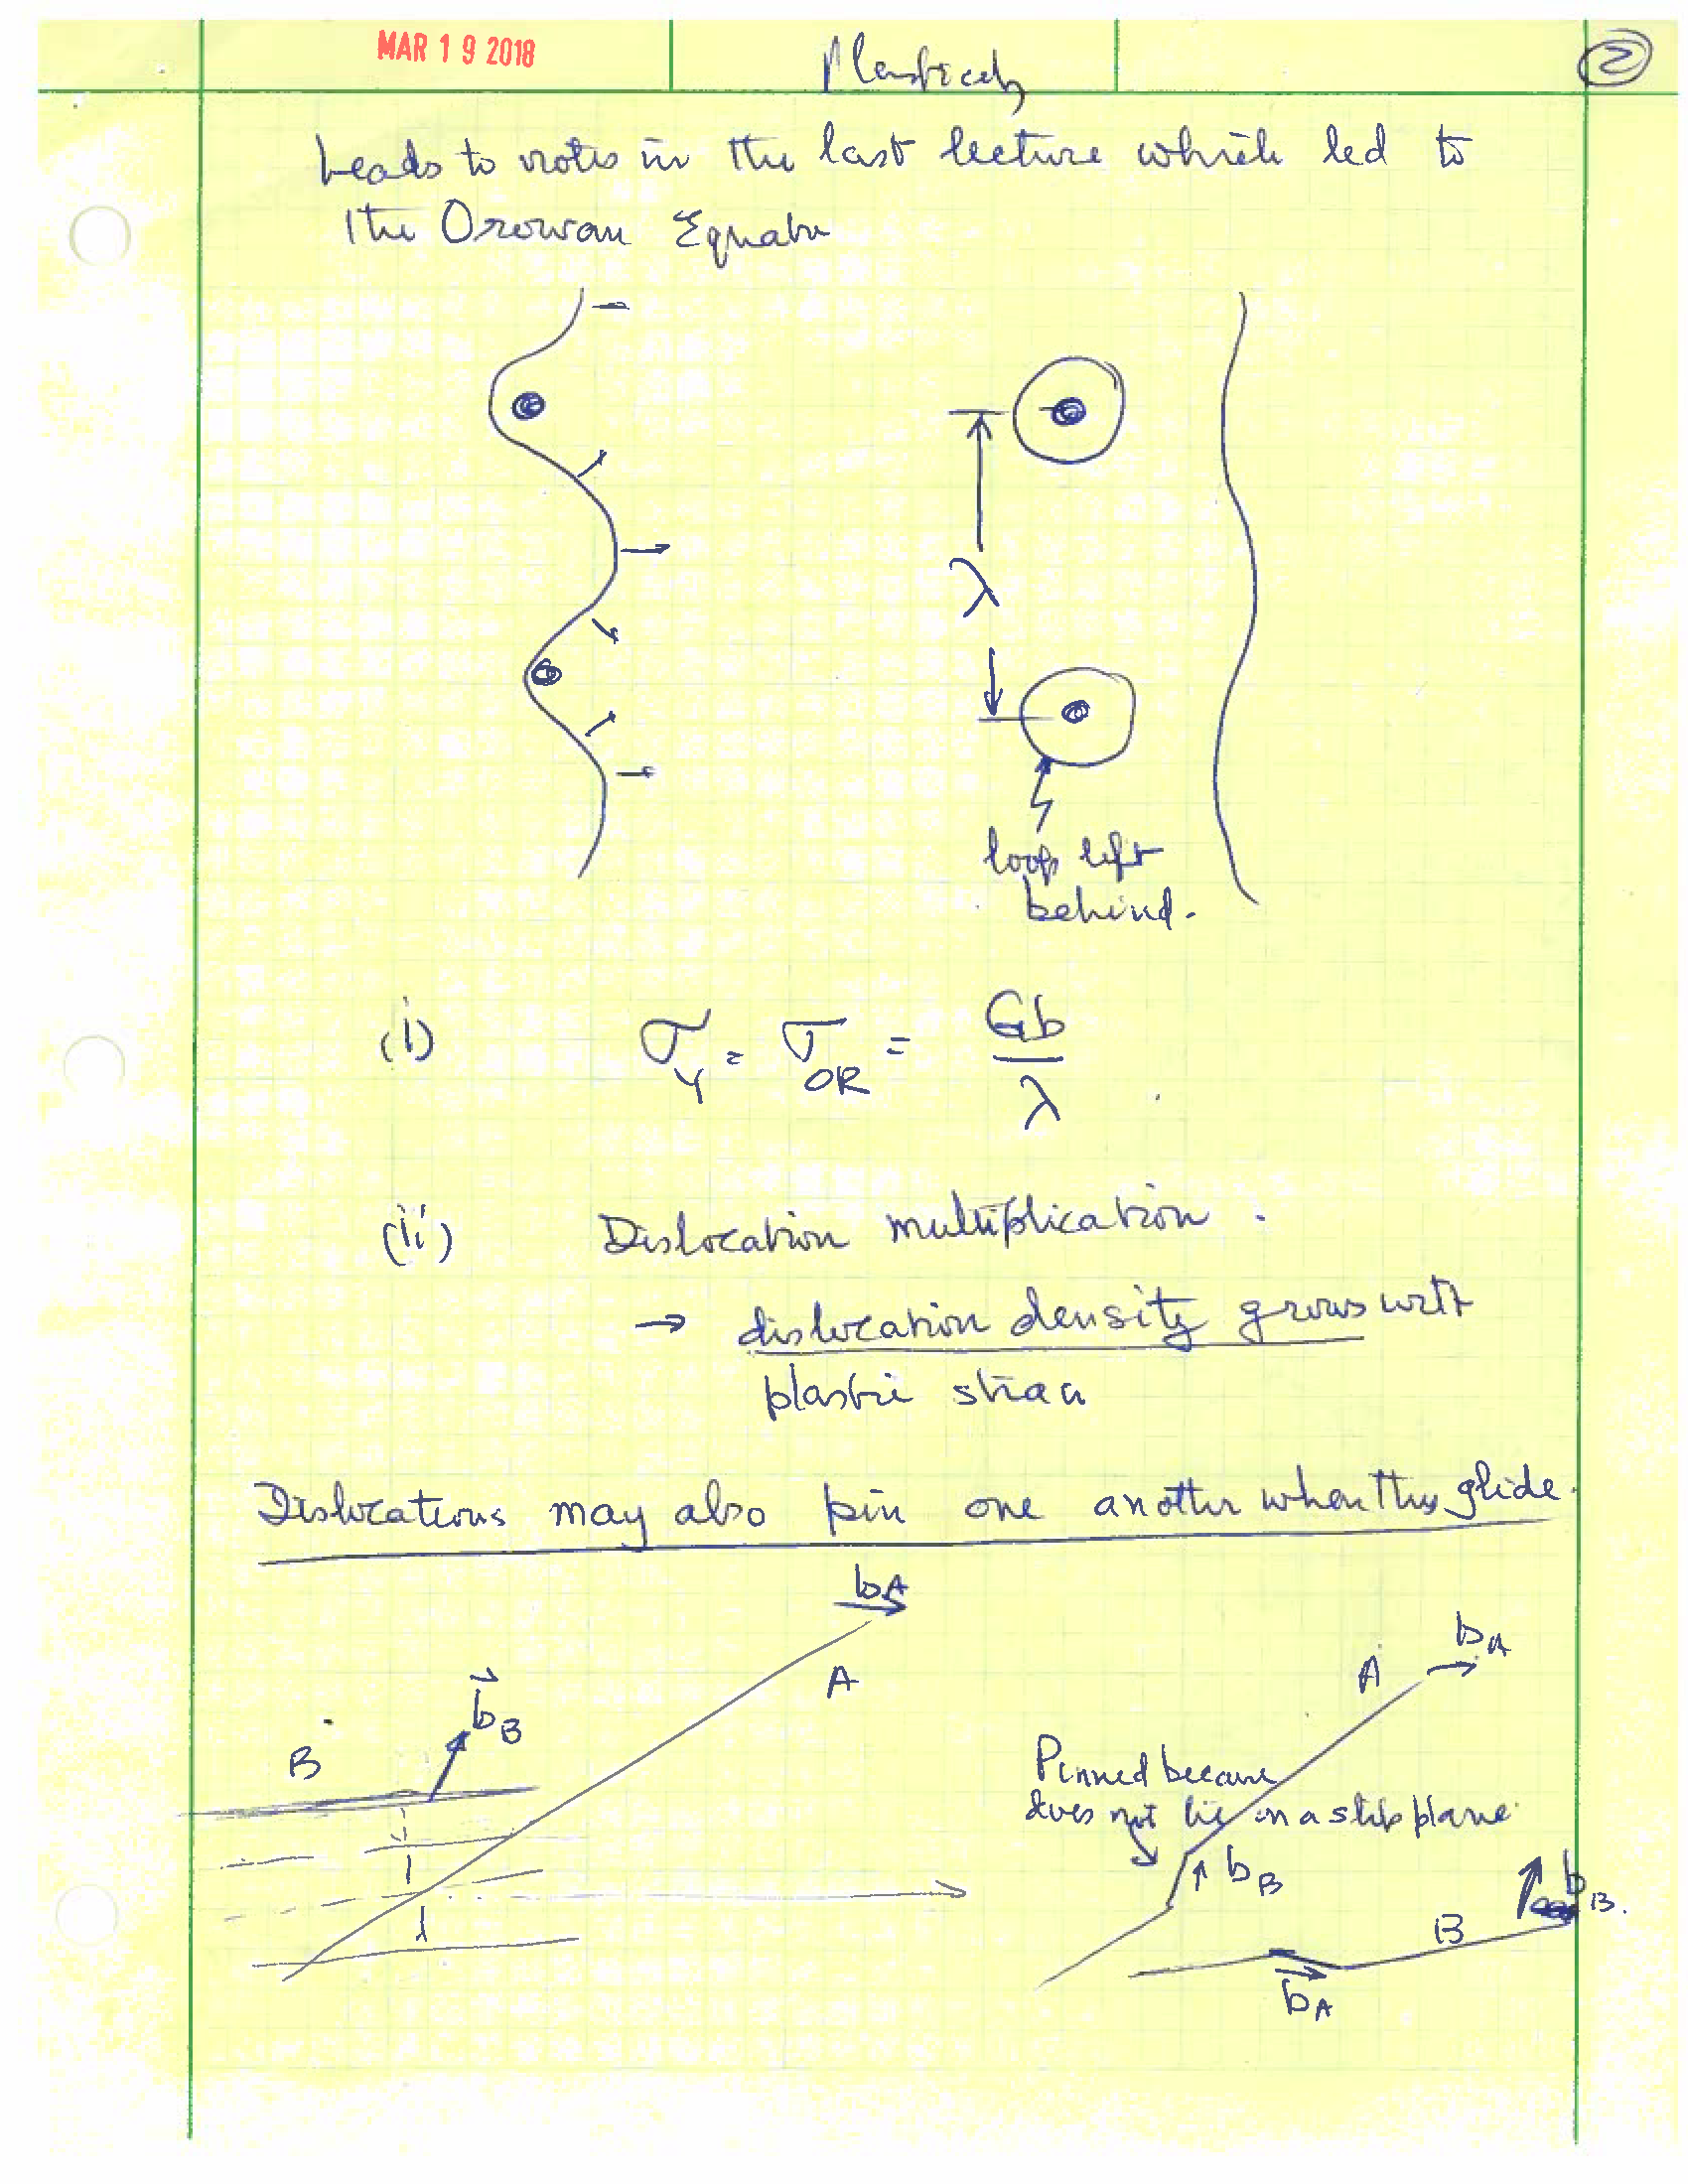 MAR 19 2018
Plasticity
2
Leads to notes in the last lecture which led to
the Orowan Equatn
λ
loop left
behind.
(i) σ_Y = σ_OR = Gb/λ
(ii) Dislocation multiplication.
→ dislocation density grows with
plastic strain
Dislocations may also pin one another when they glide.
b_A
A
b_B
B
b_A
A
Pinned because
does not lie in a slip plane.
b_B
b_B.
B
b_A